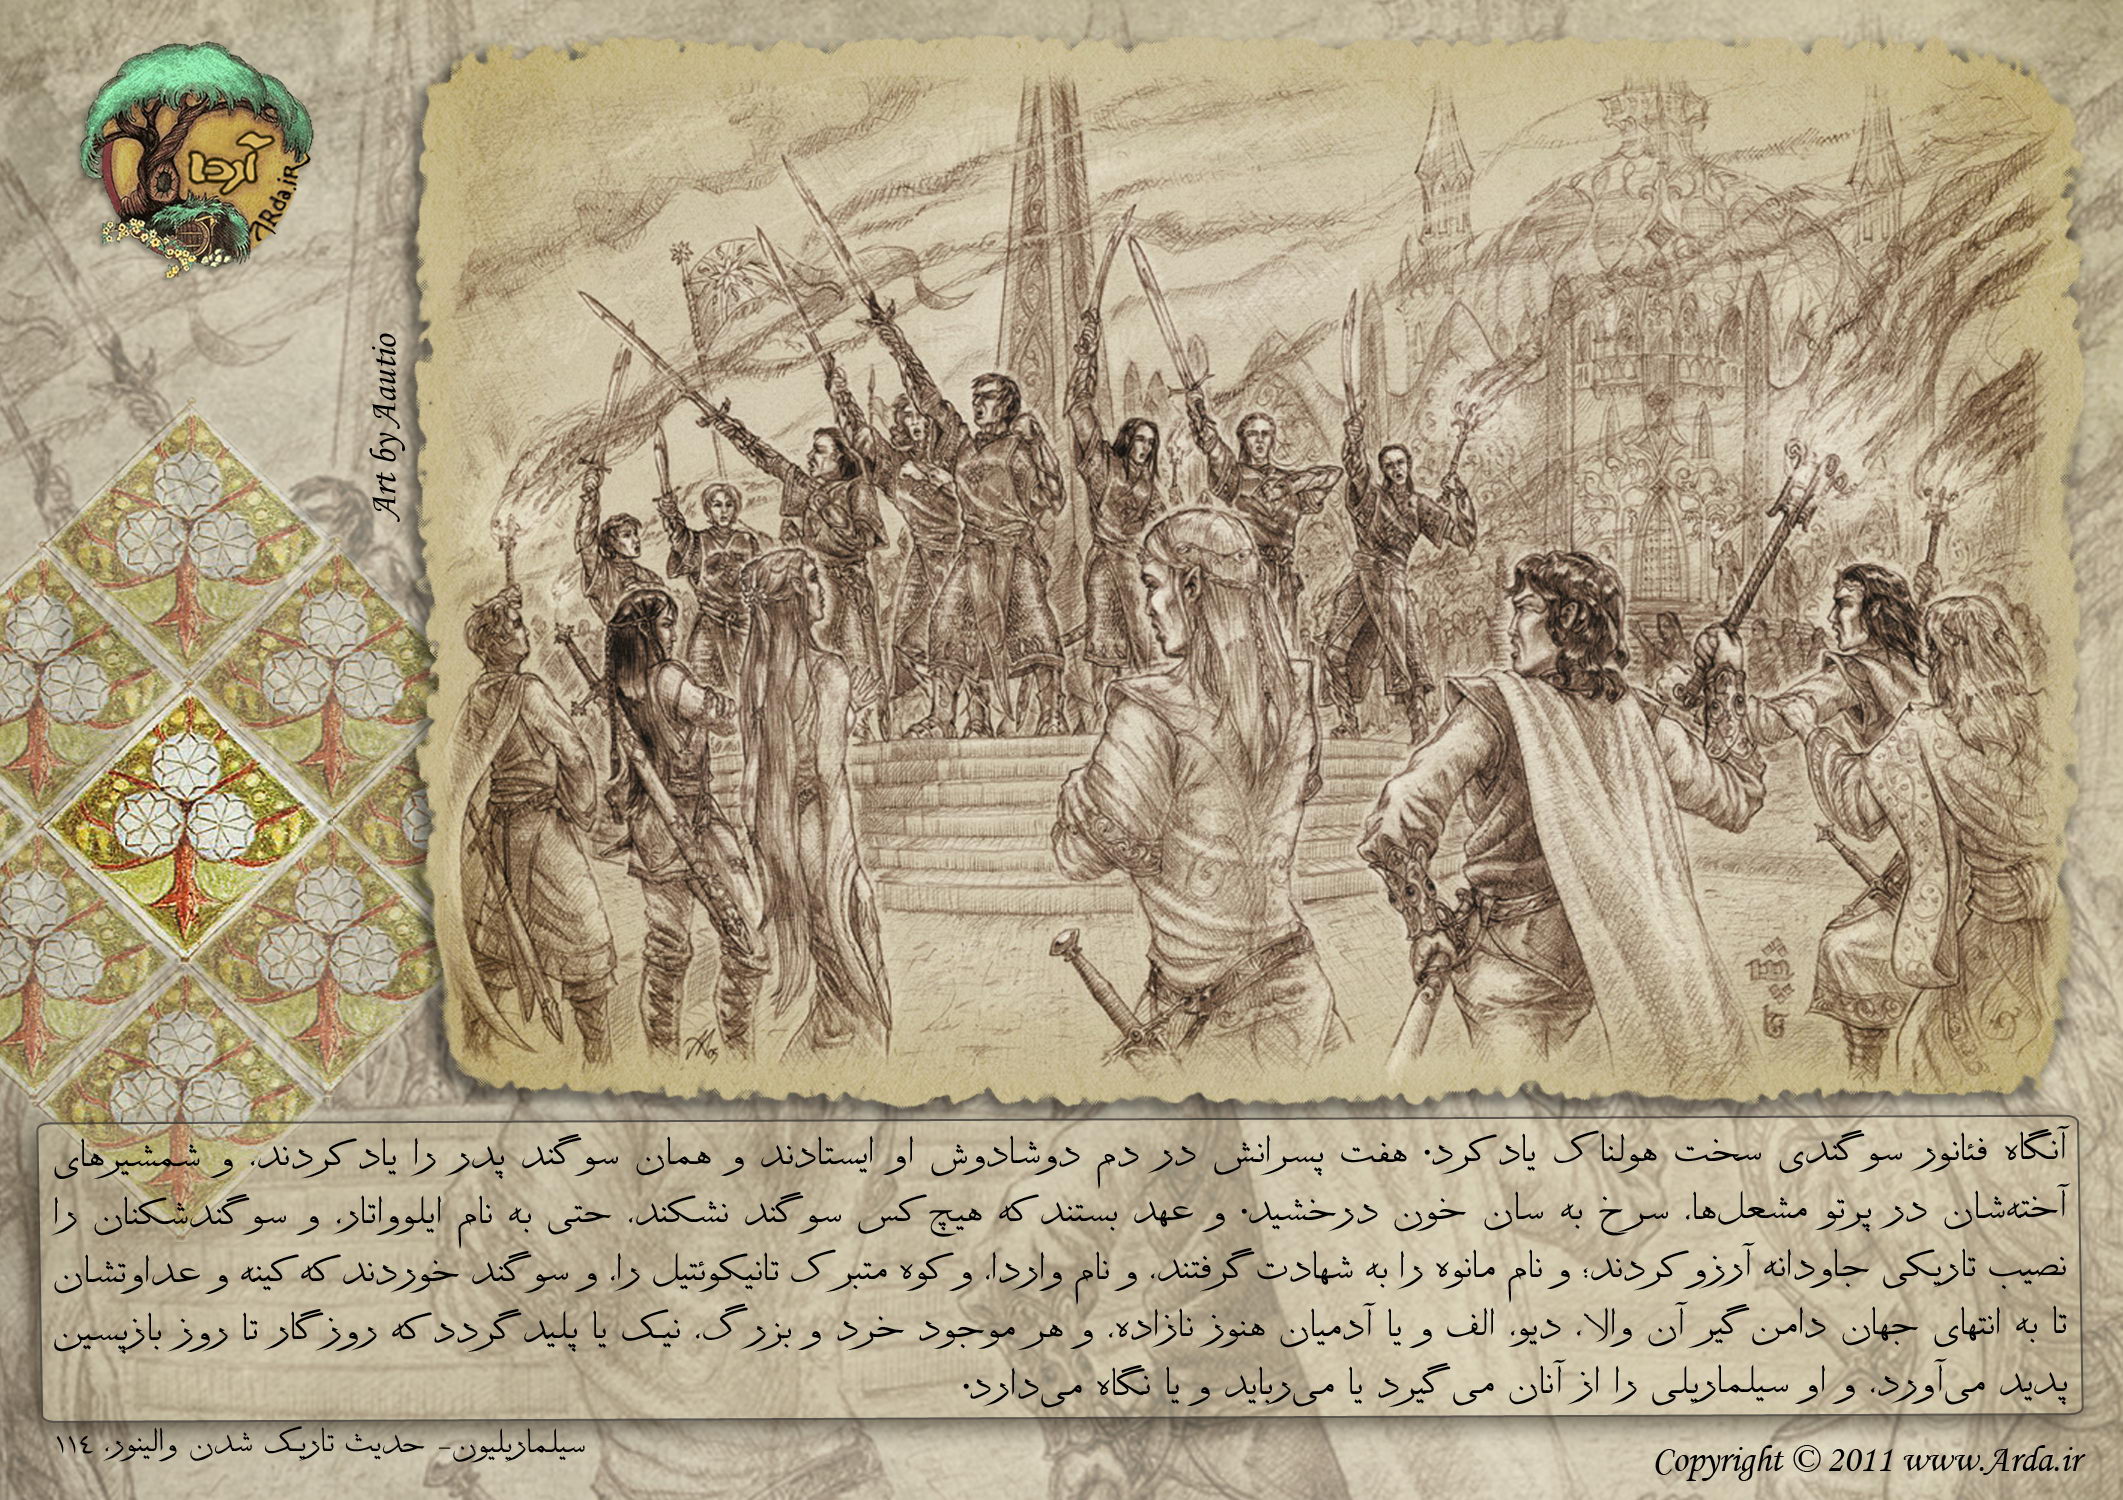 آردا
ARda.iR
Art by Aautio
آنگاه فئانور سوگندی سخت هولناک یاد کرد. هفت پسرانش در دم دوشادوش او ایستادند و همان سوگند پدر را یاد کردند، و شمشیرهای
آخته‌شان در پرتو مشعل‌ها، سرخ به سان خون درخشید. و عهد بستند که هیچ کس سوگند نشکند، حتی به نام ایلوواتار، و سوگندشکنان را
نصیب تاریکی جاودانه آرزو کردند؛ و نام مانوه را به شهادت گرفتند، و نام واردا، و کوه متبرک تانیکوئتیل را، و سوگند خوردند که کینه و عداوتشان
تا به انتهای جهان دامن گیر آن والا، دیو، الف و یا آدمیان هنوز نازاده، و هر موجود خرد و بزرگ، نیک یا پلید گردد که روزگار تا روز بازپسین
پدید می‌آورد، و او سیلماریلی را از آنان می گیرد یا می‌رباید و یا نگاه می‌دارد.
سیلماریلیون- حدیث تاریک شدن والینور، ١١٤
Copyright © 2011 www.Arda.ir